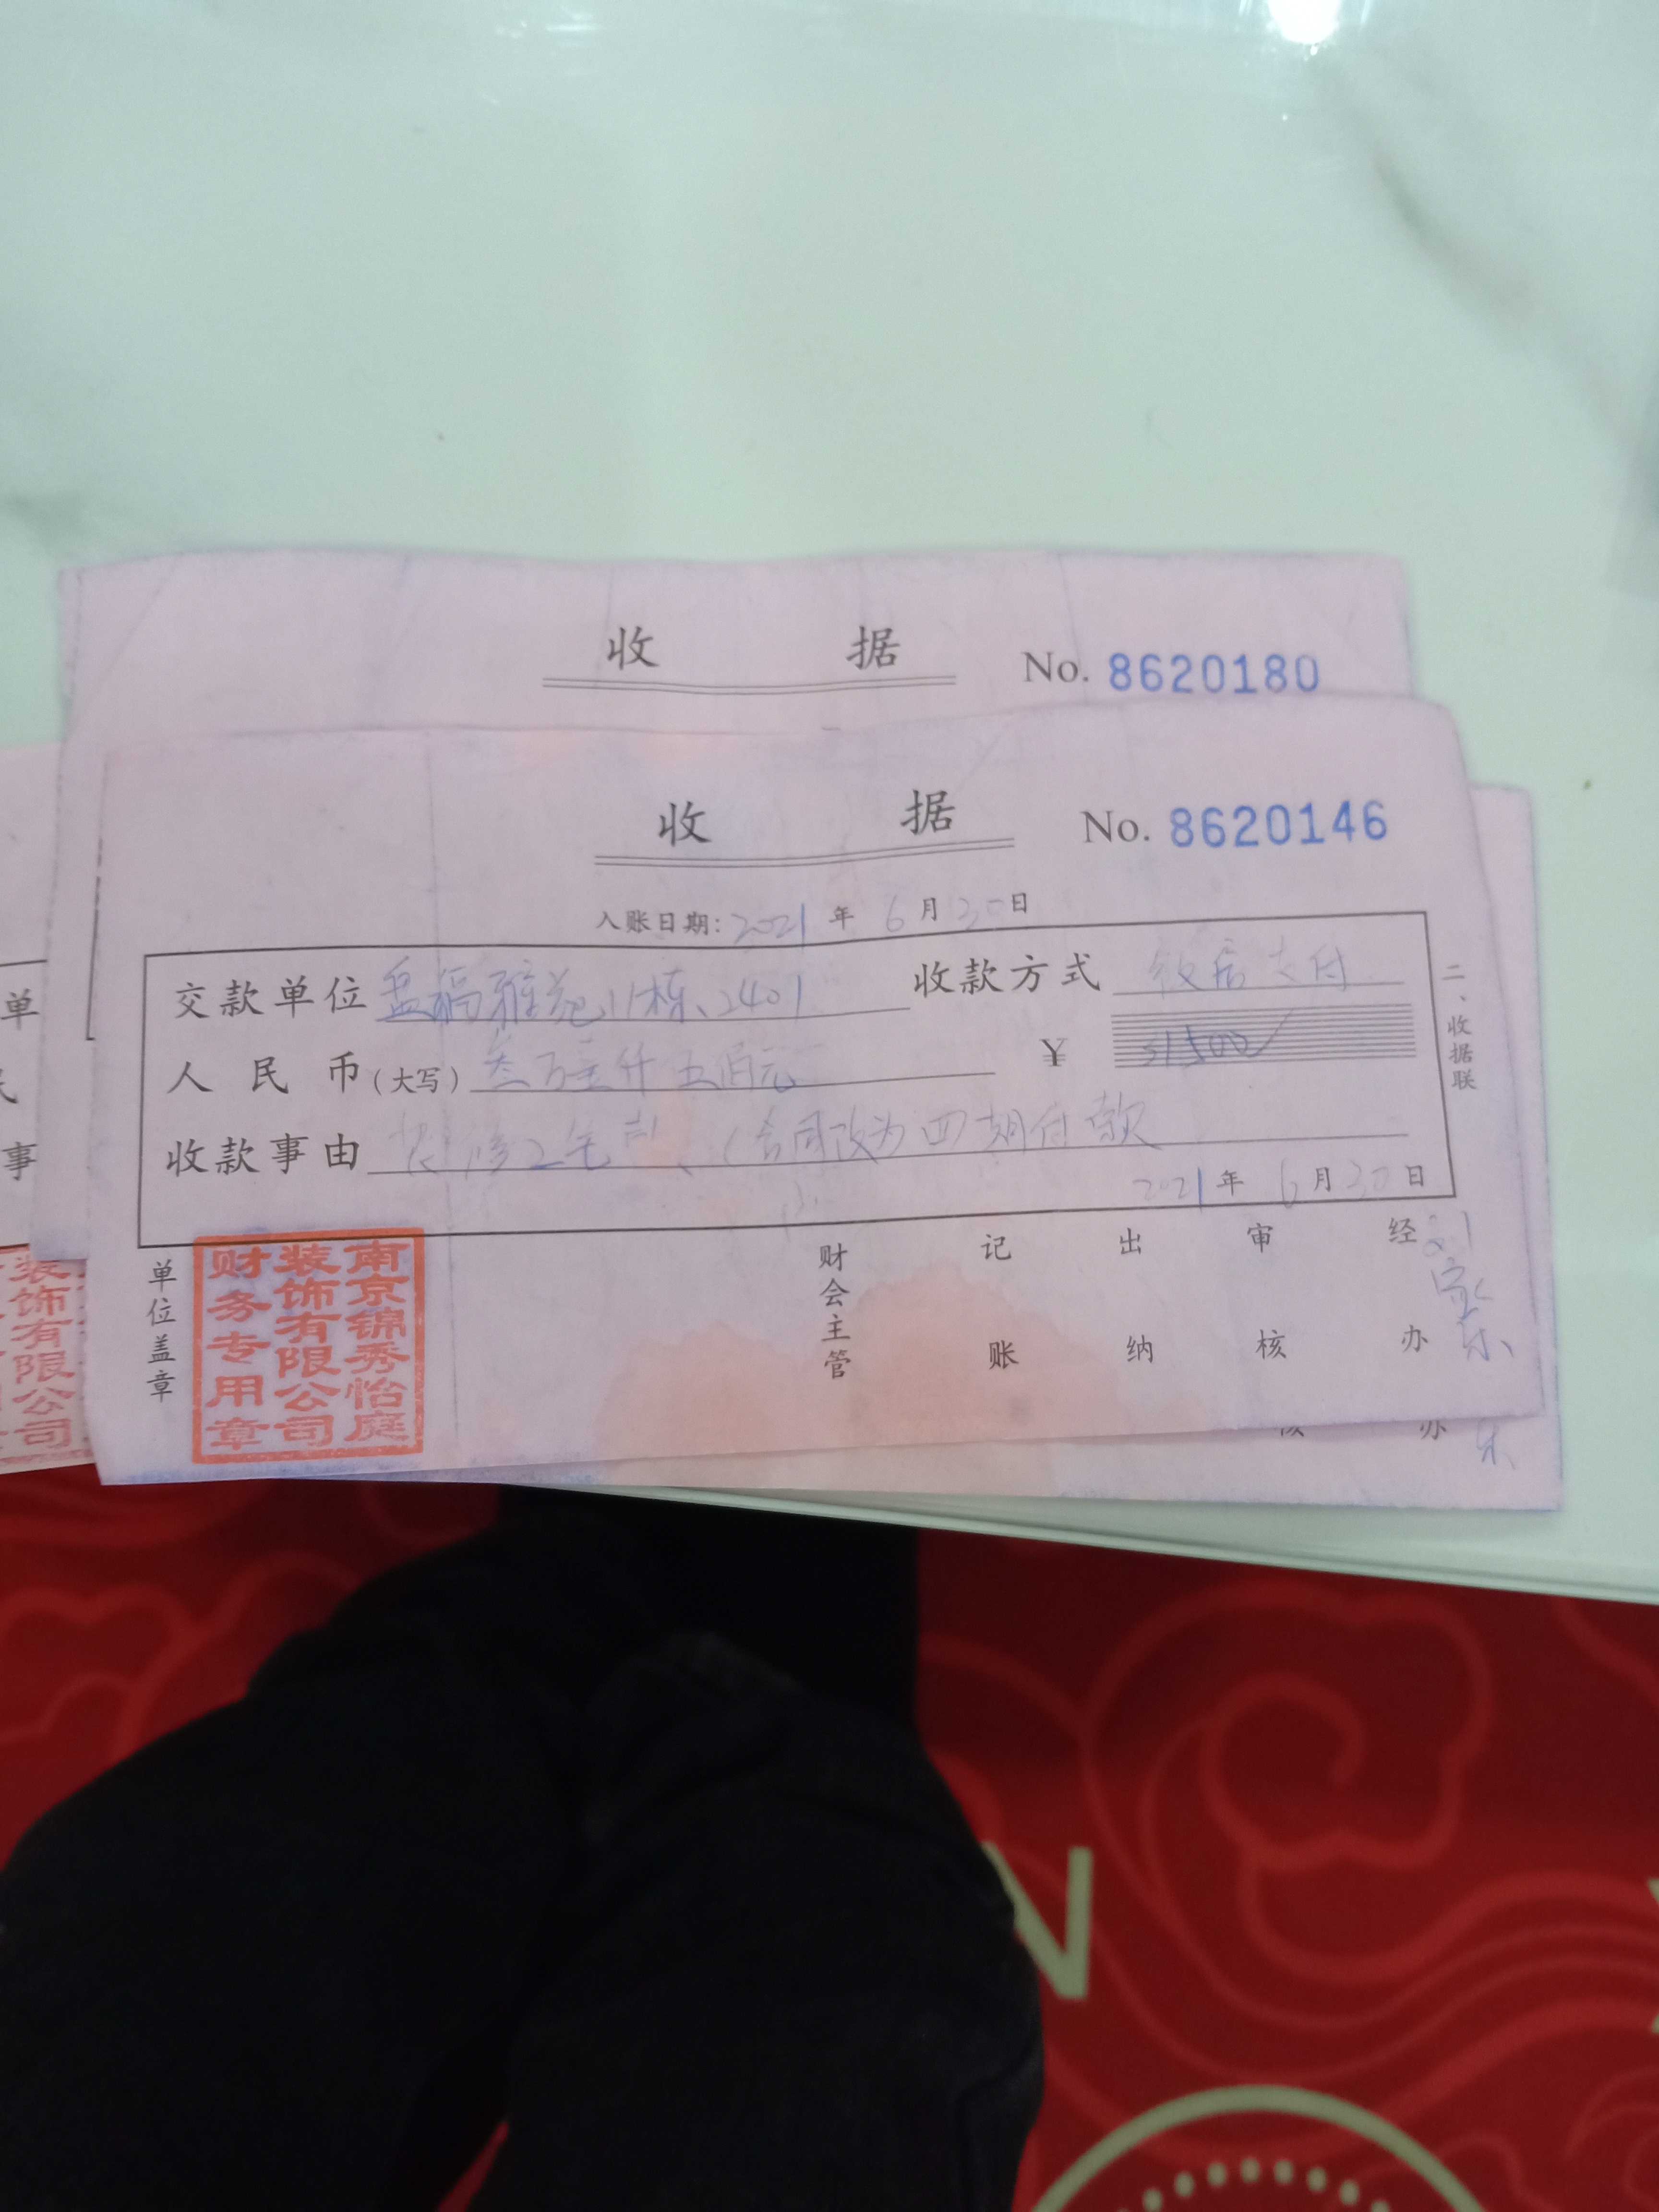 收 据 No. 8620180
收 据 No. 8620146
入账日期: 2021 年 6 月 30 日
交款单位 盘福雅苑11栋、2401 收款方式 支付
人 民 币(大写) 叁万壹仟五佰元 ¥ 31500
收款事由 装修工程 (合同改为四期付款
2021 年 6 月 30 日
二、收据联
单位盖章
南京锦秀怡庭
装饰有限公司
财务专用章
财会主管 记账 出纳 审核 经办 刘家乐
办 乐
单
民
事
装饰有限公司